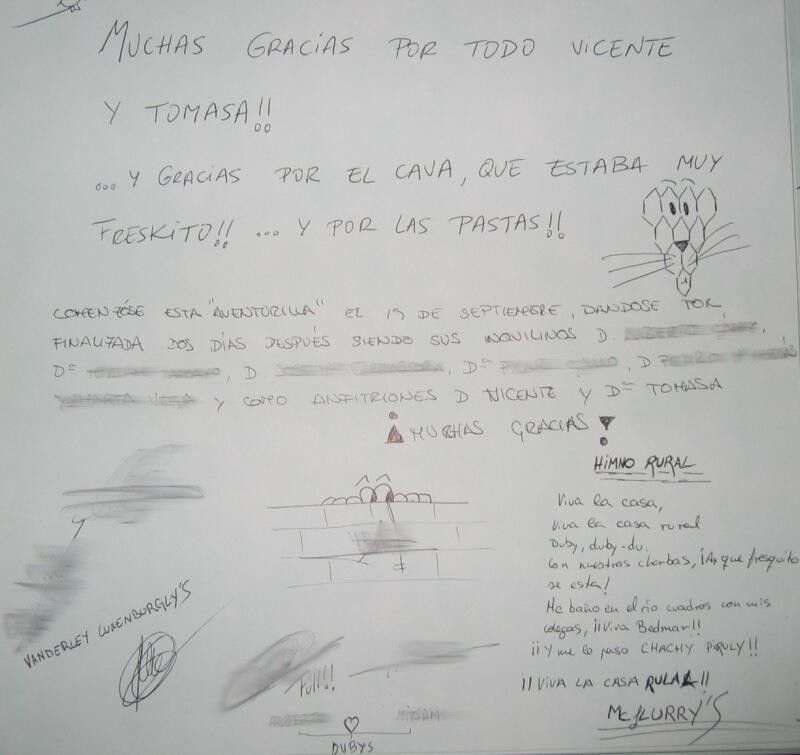 MUCHAS GRACIAS POR TODO VICENTE
Y TOMASA!!
...Y GRACIAS POR EL CAVA, QUE ESTABA MUY
FRESKITO!! ... Y POR LAS PASTAS!!
COMENZÓSE ESTA "AVENTURILLA" EL 19 DE SEPTIEMPRE, DANDOSE POR
FINALIZADA DOS DÍAS DESPUÉS SIENDO SUS INQUILINOS D.
Dª , D , Dª , D
Y Y COMO ANFITRIONES D VICENTE Y Dª TOMASA
¡MUCHAS GRACIAS!
HIMNO RURAL
Viva la casa,
viva la casa rural
Duby, duby-du.
Con nuestras chorbas, ¡Ay que fresquito
se esta!
Me baño en el río cuadros con mis
colegas, ¡¡Viva Bedmar!!
¡¡Y me lo paso CHACHY PIRULY!!
¡¡VIVA LA CASA RURAL!!
McFLURRY'S
VANDERLEY LUXENBURGLY'S
Full!!!
DUBYS